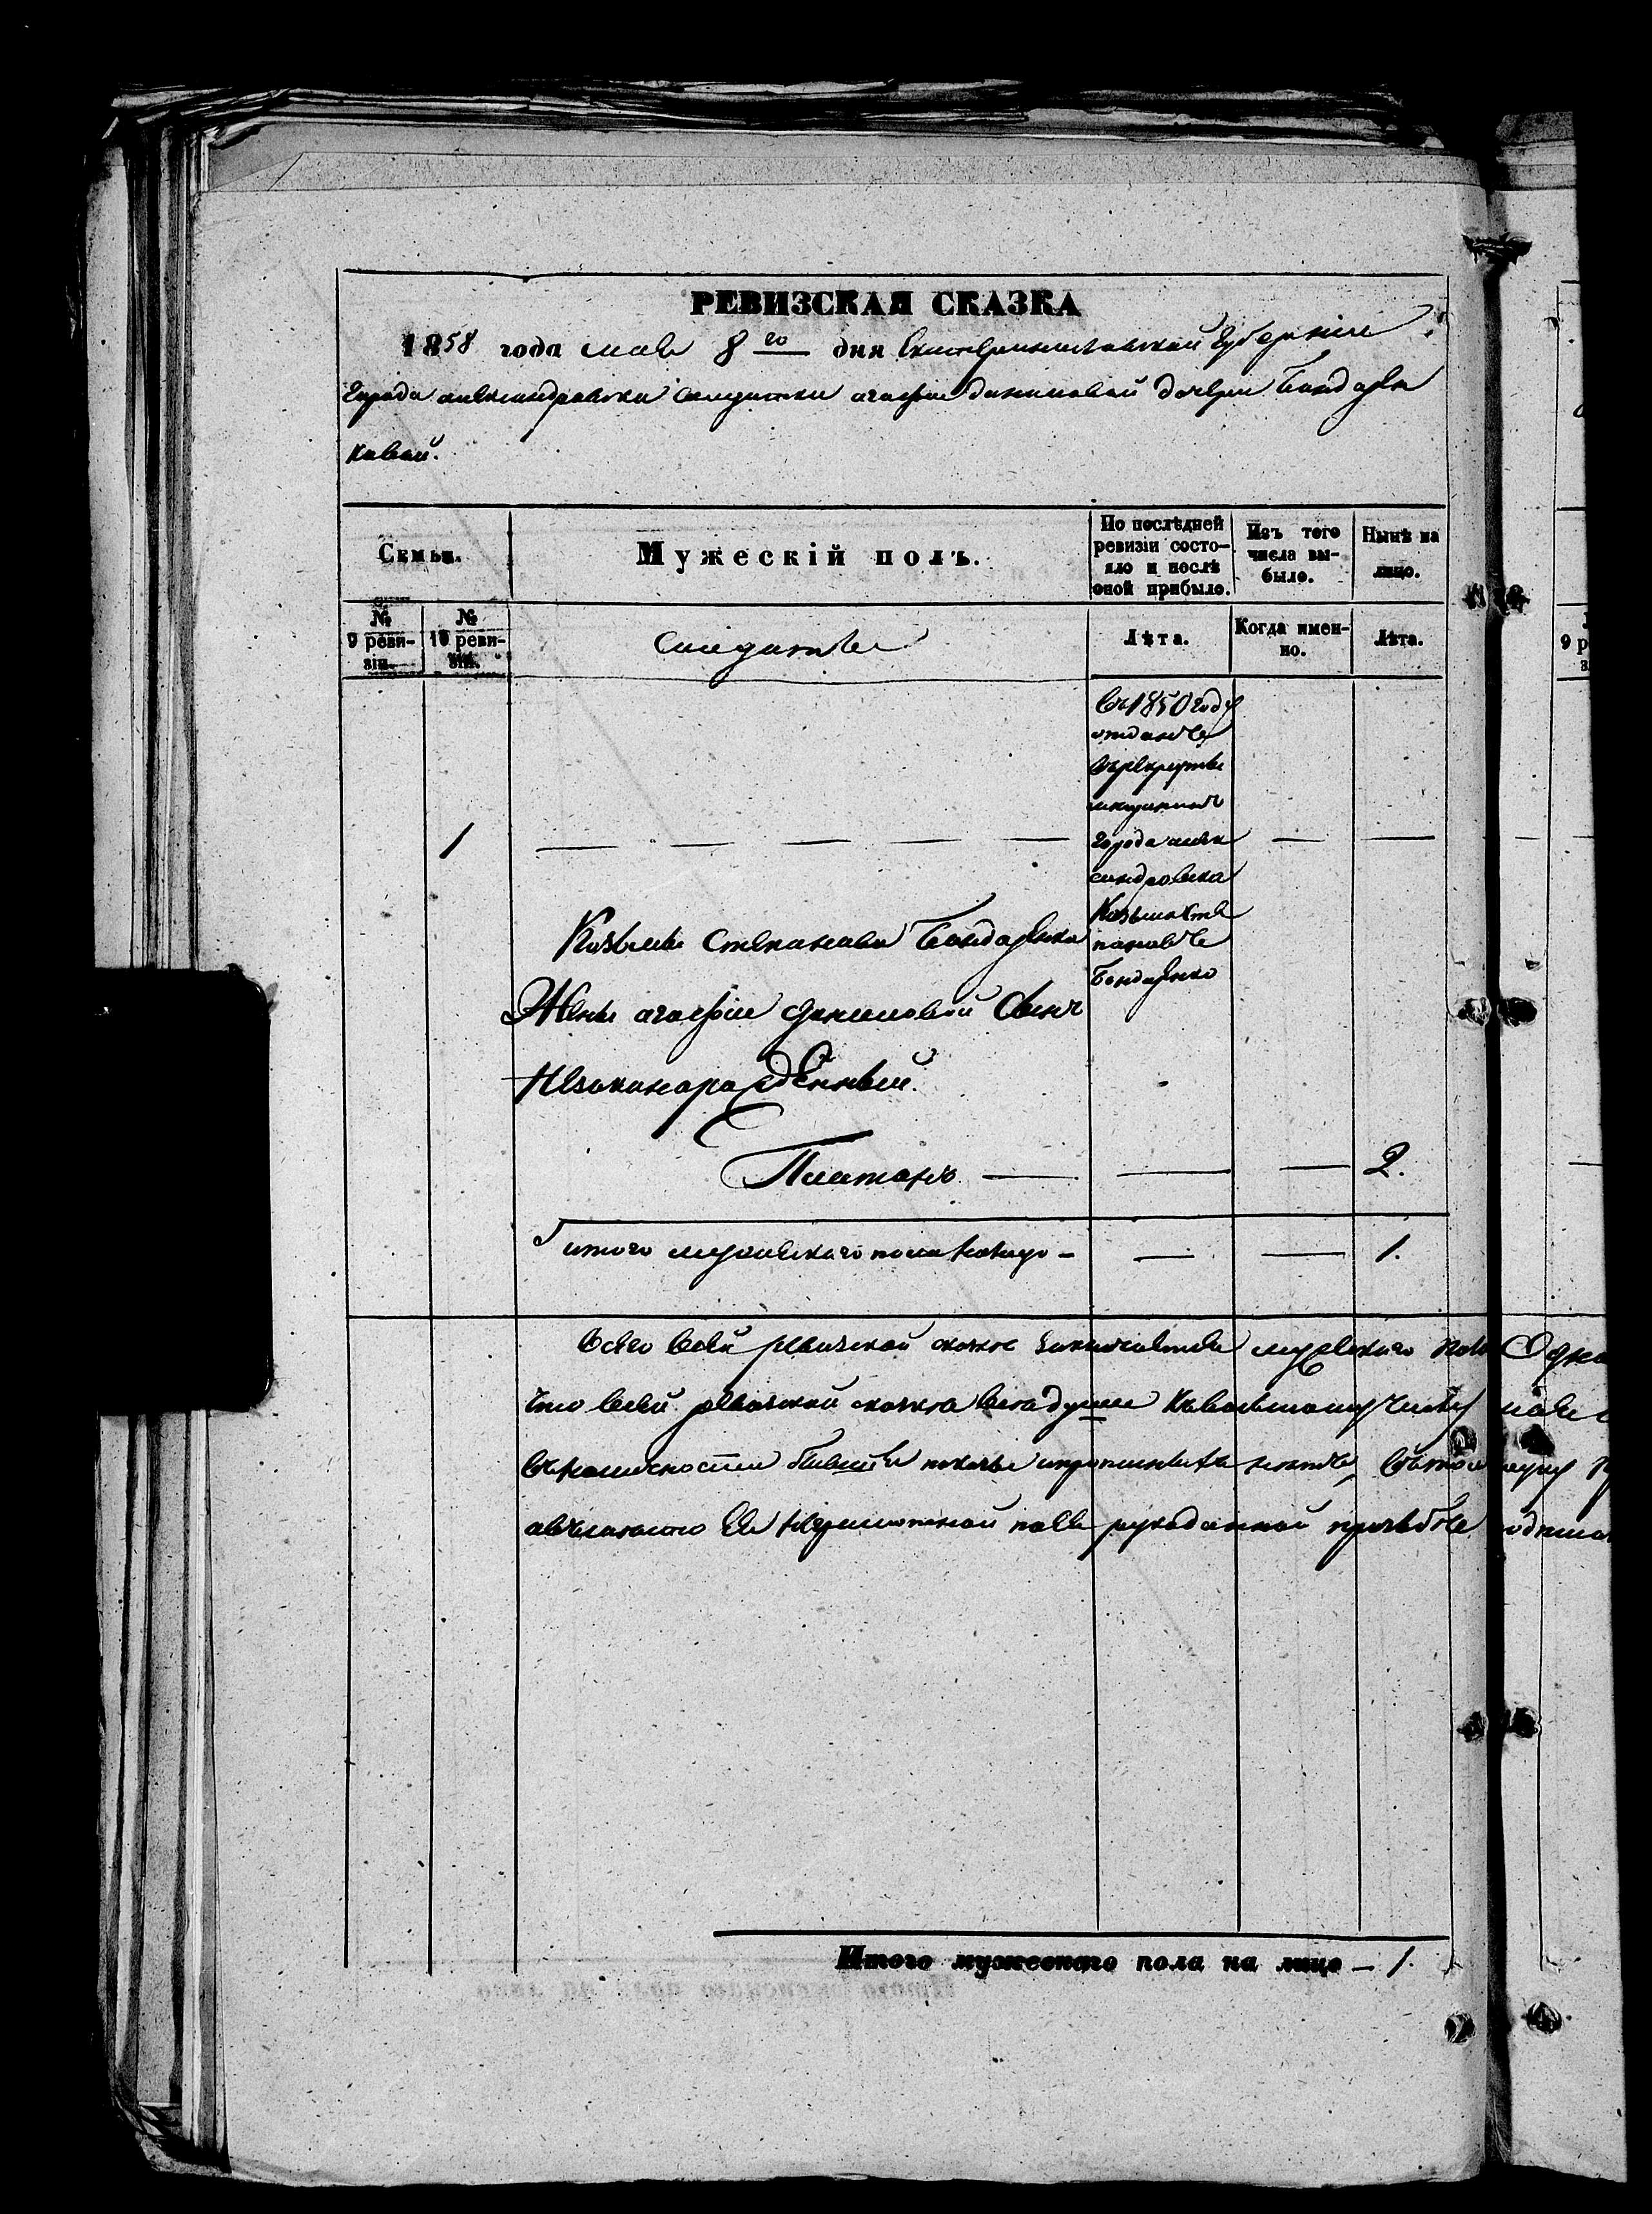 РЕВИЗСКАЯ СКАЗКА
1858 года мая 8го дня Екатеринославской губернiи
города александровска салдатки агафiи даниловой дочери Бондарен
ковай.
Семьи.
Мужескій полъ.
По послѣдней ревизіи состояло и послѣ оной прибыло.
Изъ того числа выбыло.
Нынѣ на лицо.
№ 9 ревизіи.
№ 10 ревизіи.
Салдатке
Лѣта.
Когда именно.
Лѣта.
1
Въ 1850 году
отданъ
въ рекруты
мещанинъ
города алек
сандровска
Козьма Сте
пановъ
Бондаренко
Козьмы Степанова Бондаренка
Жены агафiи Даниловой Сынъ
Незаконарожденный.
Платонъ — — — 2.
итого мужескаго пола налицо — — — 1.
Всего всей ревизской сказке заключается мужскаго пола Одна
что всей ревизской сказке все душе
неграмотной по ее рукоданной прозьбе
Итого мужескаго пола на лицо — 1.
9 р